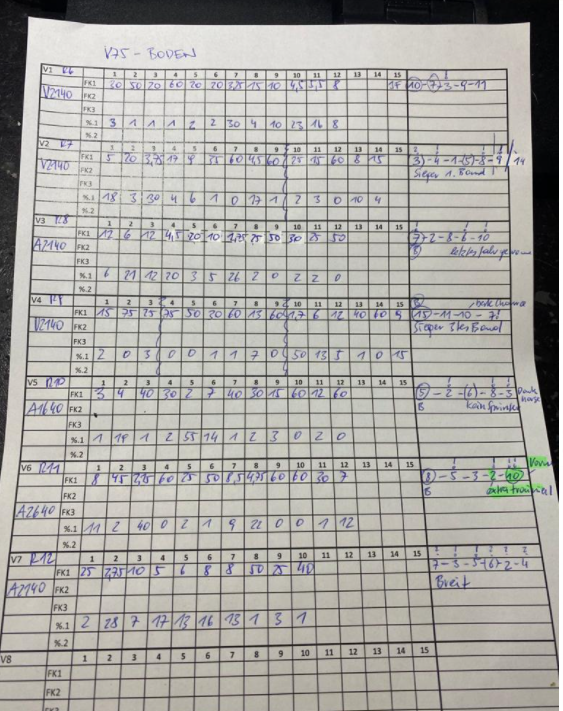 V75 - BODEN
V1 R6 1 2 3 4 5 6 7 8 9 10 11 12 13 14 15
V2140 FK1 30 50 20 60 20 20 3,25 15 10 4,5 5,5 8 15 (10)-(7)-3-9-11
FK2
FK3
%.1 3 1 1 1 2 2 30 4 10 23 16 8
%.2
V2 R7 1 2 3 4 5 6 7 8 9 10 11 12 13 14 15
V2140 FK1 5 20 3,75 17 9 35 60 4,5 60 25 15 60 8 15 3)-4-1-(5)-8-9/14
FK2 Sieger 1. Band
FK3
%.1 18 3 30 4 6 1 0 17 1 2 3 0 10 4
%.2
V3 R8 1 2 3 4 5 6 7 8 9 10 11 12 13 14 15
A2140 FK1 12 6 12 4,5 20 10 2,75 25 50 30 25 50 (7)-2-8-6-10
FK2 B
FK3
%.1 6 21 12 20 3 5 26 2 0 2 2 0
%.2
V4 R9 1 2 3 4 5 6 7 8 9 10 11 12 13 14 15
V2140 FK1 15 75 25 75 50 20 60 13 60 1,7 6 12 40 60 9 (15)-11-10-7!
FK2 Sieger 3tes Band
FK3
%.1 2 0 3 0 0 1 1 7 0 50 13 5 1 0 15
%.2
V5 R10 1 2 3 4 5 6 7 8 9 10 11 12 13 14 15
A1640 FK1 3 4 40 30 2 7 40 30 15 60 12 60 (5)-2-(6)-8-3 Dark horse
FK2 B kein Sprinter
FK3
%.1 1 19 1 2 55 14 1 2 3 0 2 0
%.2
V6 R11 1 2 3 4 5 6 7 8 9 10 11 12 13 14 15
FK1 8 45 2,25 60 25 50 8,5 4,75 60 60 30 7 (8)-5-3-2-(10)
FK2 B extra trainiert
A2640 FK3
%.1 11 2 40 0 2 1 9 22 0 0 1 12
%.2
V7 R12 1 2 3 4 5 6 7 8 9 10 11 12 13 14 15
FK1 25 2,75 10 5 6 8 8 50 25 40 7-3-5-(6)-2-4
A2140 FK2 Breit
FK3
%.1 2 28 7 17 13 16 13 1 3 1
%.2
V8 1 2 3 4 5 6 7 8 9 10 11 12 13 14 15
FK1
FK2
FK3